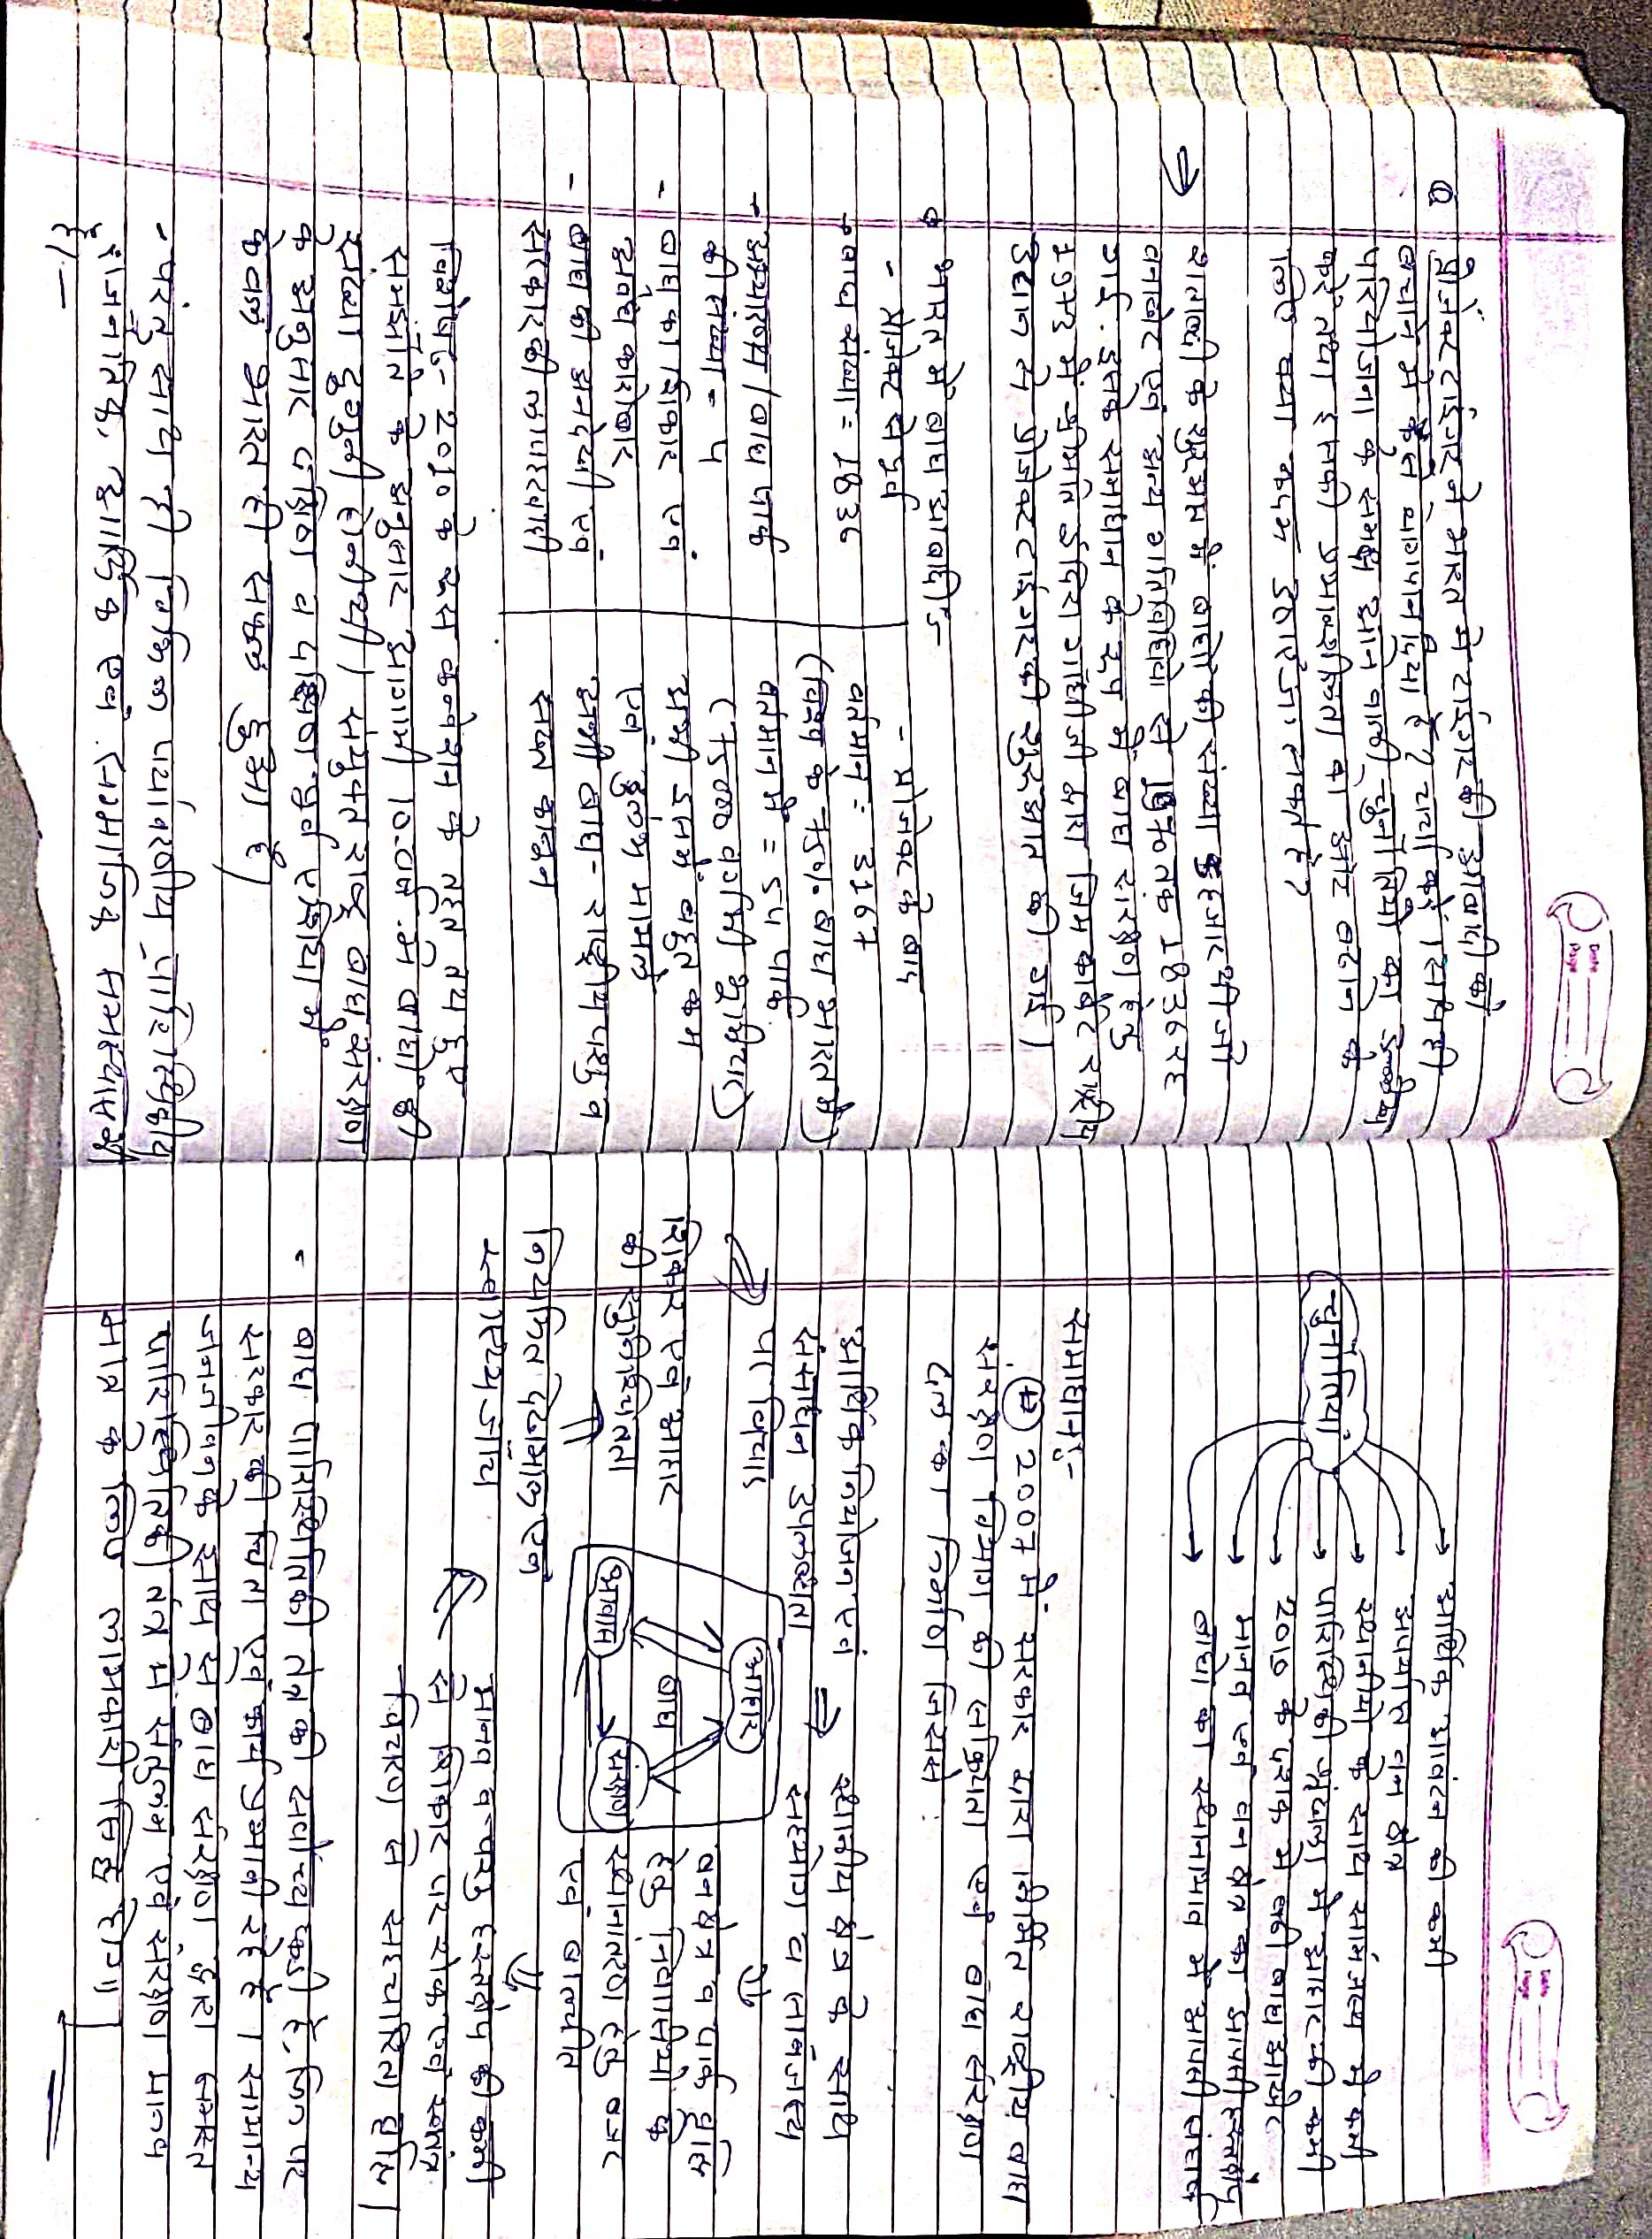 Date
Page
Q प्रोजेक्ट टाईगर ने भारत में टाईगर की आबादी को
बचाने में कैसे योगदान दिया है? चर्चा करें। साथ ही
परियोजना के समक्ष आने वाली चुनौतियों का उल्लेख
करें तथा इसकी प्रभावशीलता को और बढ़ाने के
लिए क्या कदम उठाए जा सकते हैं?
→ शताब्दी के शुरूआत में बाघों की संख्या हजार थी जो
एवं अन्य गतिविधियों से 1970 तक 1836 रह
गई। इसके समाधान के रूप में बाघ संरक्षण हेतु
1973 में श्रीमति इंदिरा गाँधी जी द्वारा जिम कार्बेट राष्ट्रीय
उद्यान से प्रोजेक्ट टाइगर की शुरुआत की गई।
भारत में बाघ आबादी:-
- प्रोजेक्ट से पूर्व
- बाघ संख्या = 1836
- अभ्यारण्य / बाघ पार्क
की संख्या = 9
- बाघ का शिकार एवं
अवैध कारोबार
- बाघ की अनदेखी एवं
सरकार की लापरवाही
- प्रोजेक्ट के बाद
वर्तमान = 3167
(विश्व के 75% बाघ भारत में)
वर्तमान में = 54 पार्क
(75000 वर्ग किमी)
अभी इनमें बहुत कम
एवं दुर्लभ मामले
अभी बाघ- राष्ट्रीय पशु व
सख्त कानून
विशेष:- 2010 के रूस कन्वेंशन के तहत तय हुए
समझौते के अनुसार आगामी 10 वर्ष में बाघों की
संख्या दुगुनी होनी थी। संयुक्त राष्ट्र बाघ संरक्षण
के अनुसार दक्षिण व दक्षिण पूर्व एशिया में
केवल भारत ही सफल हुआ है।
- परंतु साथ ही विभिन्न पर्यावरणीय पारिस्थितिकीय
राजनीतिक, आर्थिक एवं सामाजिक समस्याएं भी
हैं।-
Date
Page
चुनौतियाँ
→ आर्थिक आवंटन की कमी
→ अपर्याप्त वन क्षेत्र
→ स्थानीयों के साथ सामंजस्य में कमी
→ पारिस्थितिकी श्रृंखला में आहार की कमी
→ 2010 के दशक में बढ़ी बाघ आबादी
→ मानव एवं वन क्षेत्र का आपसी हस्तक्षेप
→ बाघों का स्थानाभाव में आपसी संघर्ष
समाधान:-
2007 में सरकार द्वारा निर्मित राष्ट्रीय बाघ
संरक्षण विभाग की स्थापना एवं बाघ संरक्षण
दल का निर्माण जिससे:
आर्थिक नियोजन एवं
संसाधन उपलब्धता
⇒ स्थानीय क्षेत्र के साथ
सहयोग व सामंजस्य
पर्याप्त
शिकार एवं आहार
की सुनिश्चितता
आहार
बाघ
आवास
संरक्षण
वन क्षेत्र व पार्क वृद्धि
हेतु निवासियों के
स्थानांतरण हेतु बजट
एवं बातचीत
नियमित देखभाल एवं
स्वास्थ्य जांच
← मानव व पशु हस्तक्षेप की कमी
से शिकार पर रोक एवं स्वतंत्र
विचरण से सहचारिता वृद्धि।
- बाघ पारिस्थितिकी तंत्र की सर्वोच्च कड़ी है, जिन पर
सरकार की चिंता एवं कार्य प्रभावी रहे हैं। सामान्य
जनजीवन के साथ से बाघ संरक्षण द्वारा समस्त
पारिस्थितिकी तंत्र में संतुलन एवं संरक्षण मानव
मात्र के लिए लाभकारी सिद्ध होगा।